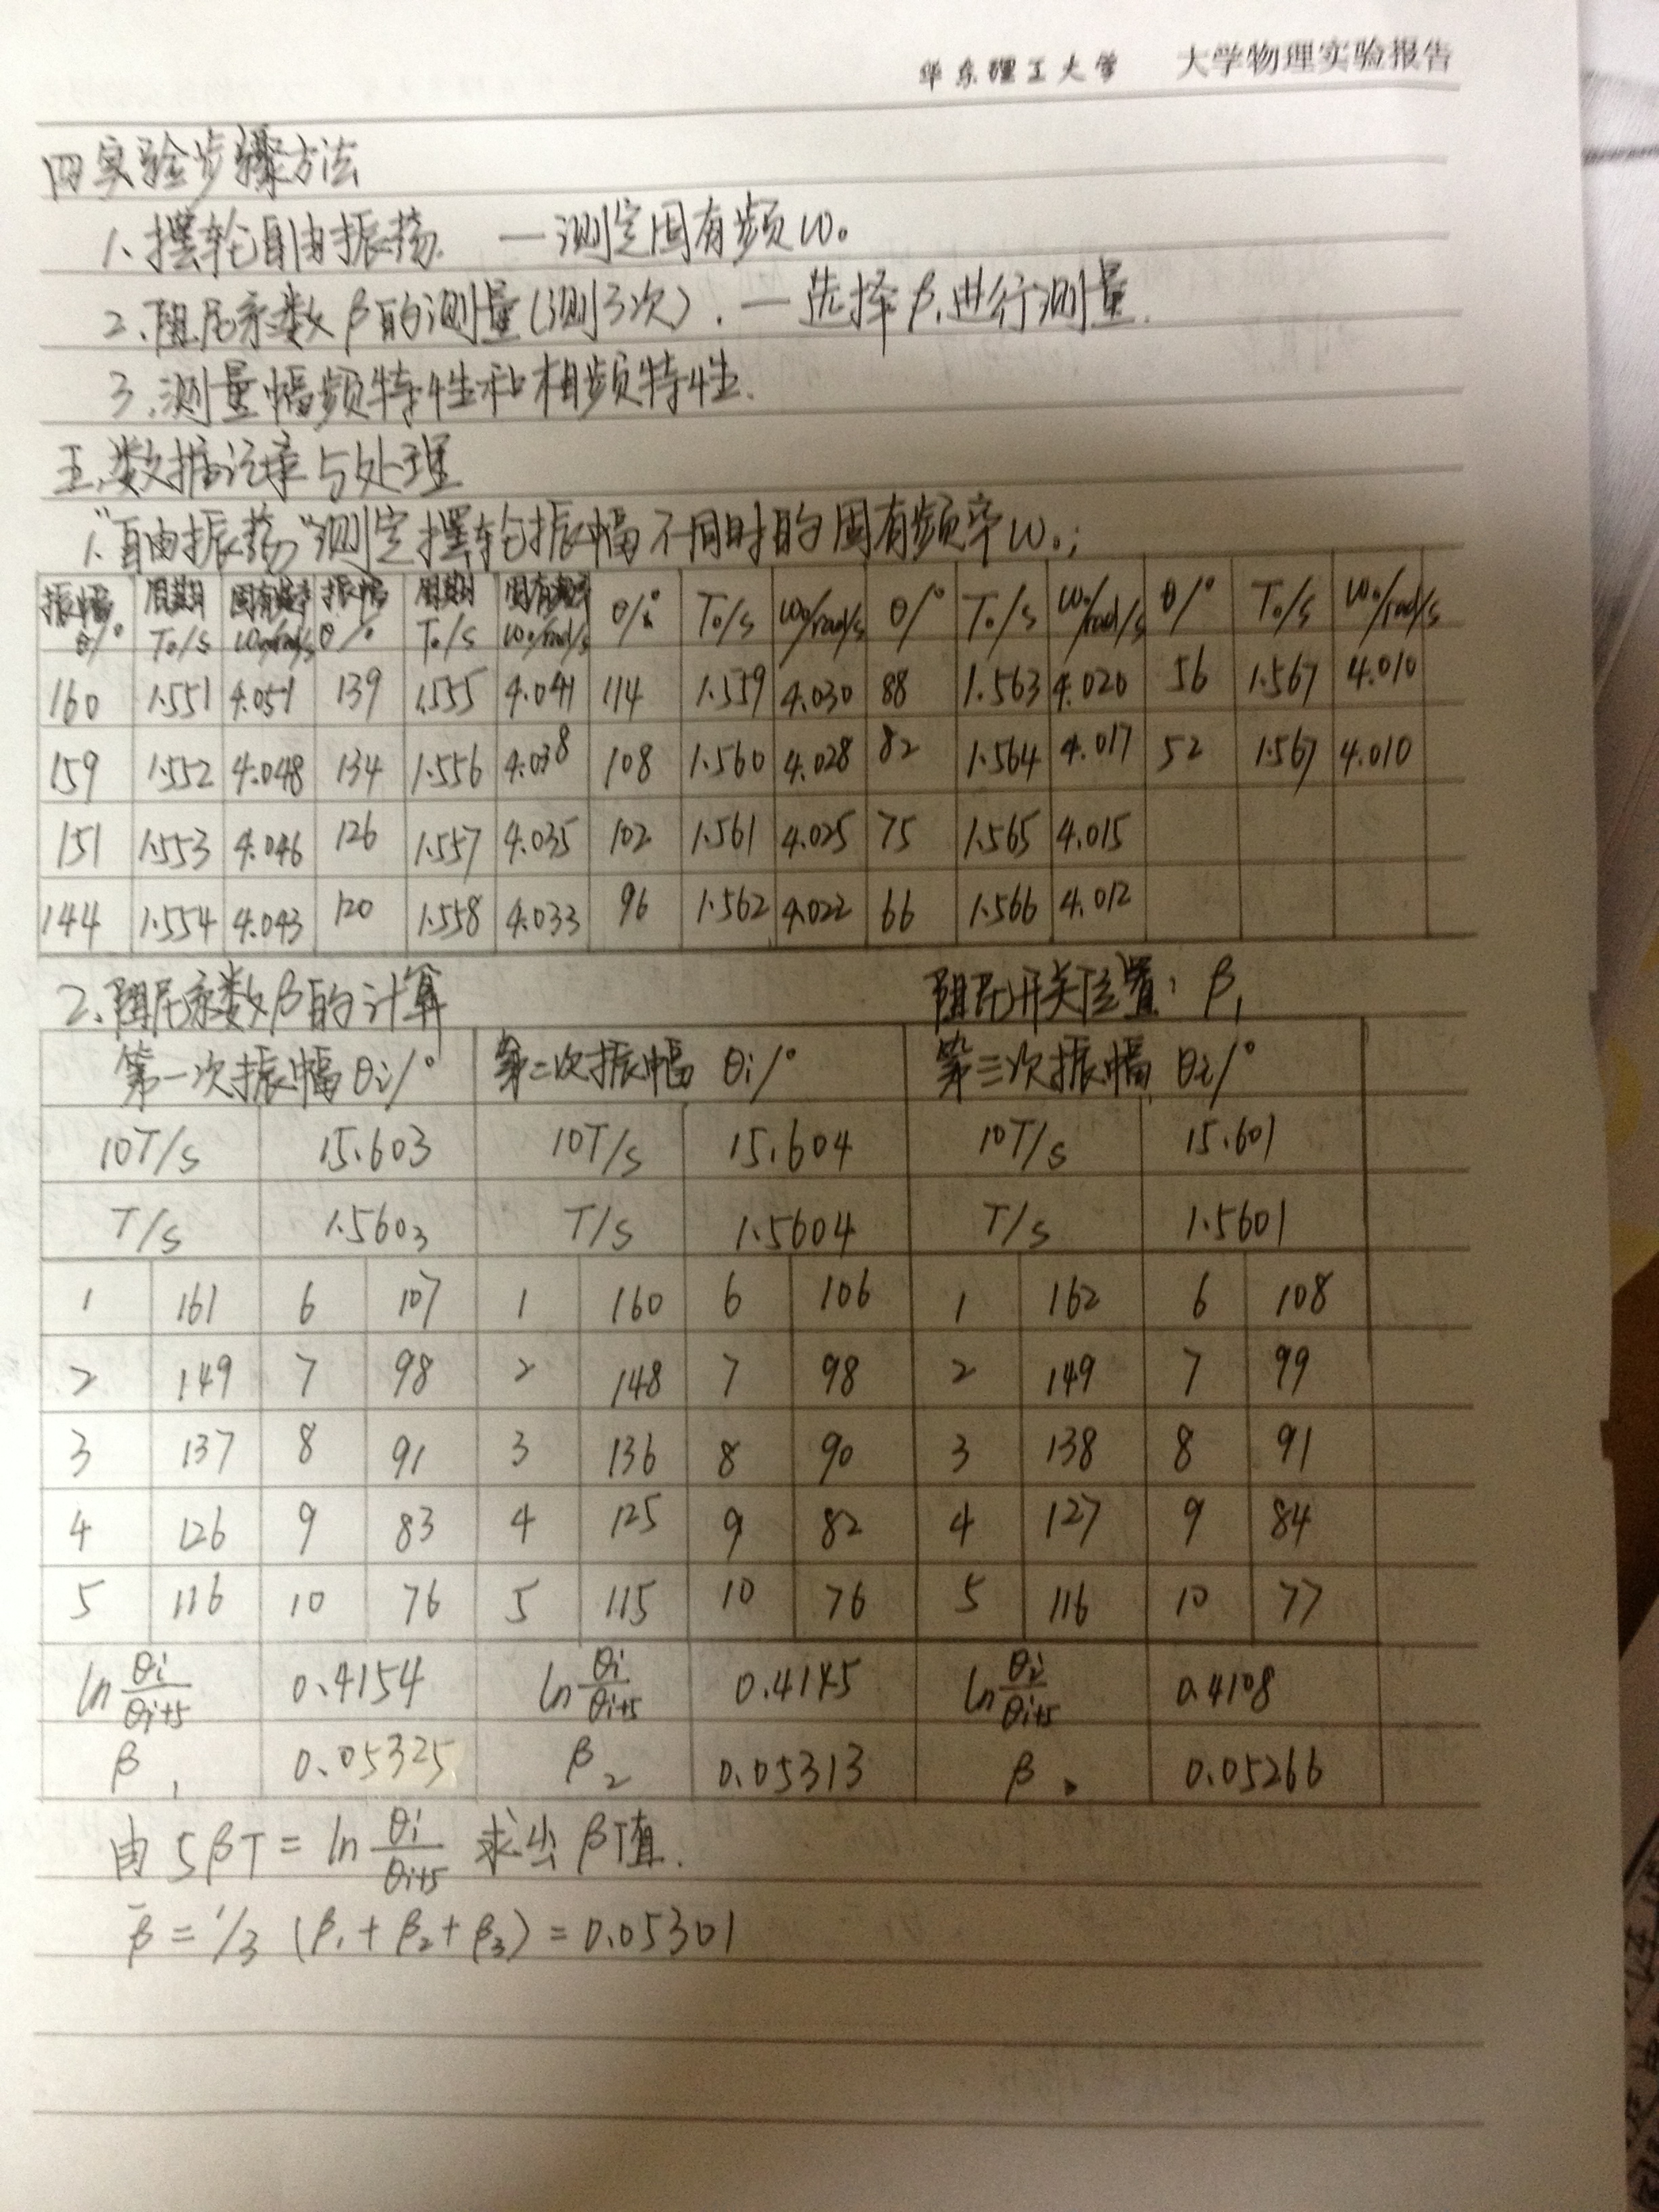 华东理工大学 大学物理实验报告
四实验步骤方法
1、摆轮自由振荡. —测定固有频ω₀
2.阻尼系数β的测量(测3次). —选择β₁进行测量.
3.测量幅频特性和相频特性.
五.数据记录与处理
1."自由振荡"测定摆轮振幅不同时的固有频率ω₀;
振幅θ/° 周期T₀/s 固有频率ω₀/rad/s 振幅θ/° 周期T₀/s 固有频率ω₀/rad/s θ/° T₀/s ω₀/rad/s θ/° T₀/s ω₀/rad/s θ/° T₀/s ω₀/rad/s
160 1.551 4.051 139 1.555 4.041 114 1.559 4.030 88 1.563 4.020 56 1.567 4.010
159 1.552 4.048 134 1.556 4.038 108 1.560 4.028 82 1.564 4.017 52 1.567 4.010
151 1.553 4.046 126 1.557 4.035 102 1.561 4.025 75 1.565 4.015
144 1.554 4.043 120 1.558 4.033 96 1.562 4.022 66 1.566 4.012
2.阻尼系数β的计算 阻尼开关位置: β₁
第一次振幅θi/° 第二次振幅 θi/° 第三次振幅 θi/°
10T/s 15.603 10T/s 15.604 10T/s 15.601
T/s 1.5603 T/s 1.5604 T/s 1.5601
1 161 6 107 1 160 6 106 1 162 6 108
2 149 7 98 2 148 7 98 2 149 7 99
3 137 8 91 3 136 8 90 3 138 8 91
4 126 9 83 4 125 9 82 4 127 9 84
5 116 10 76 5 115 10 76 5 116 10 77
ln θi/θi+5 0.4154 ln θi/θi+5 0.4145 ln θi/θi+5 0.4108
β₁ 0.05325 β₂ 0.05313 β 0.05266
由 5βT = ln θi/θi+5 求出 β值.
β̄ = 1/3 (β₁ + β₂ + β₃) = 0.05301